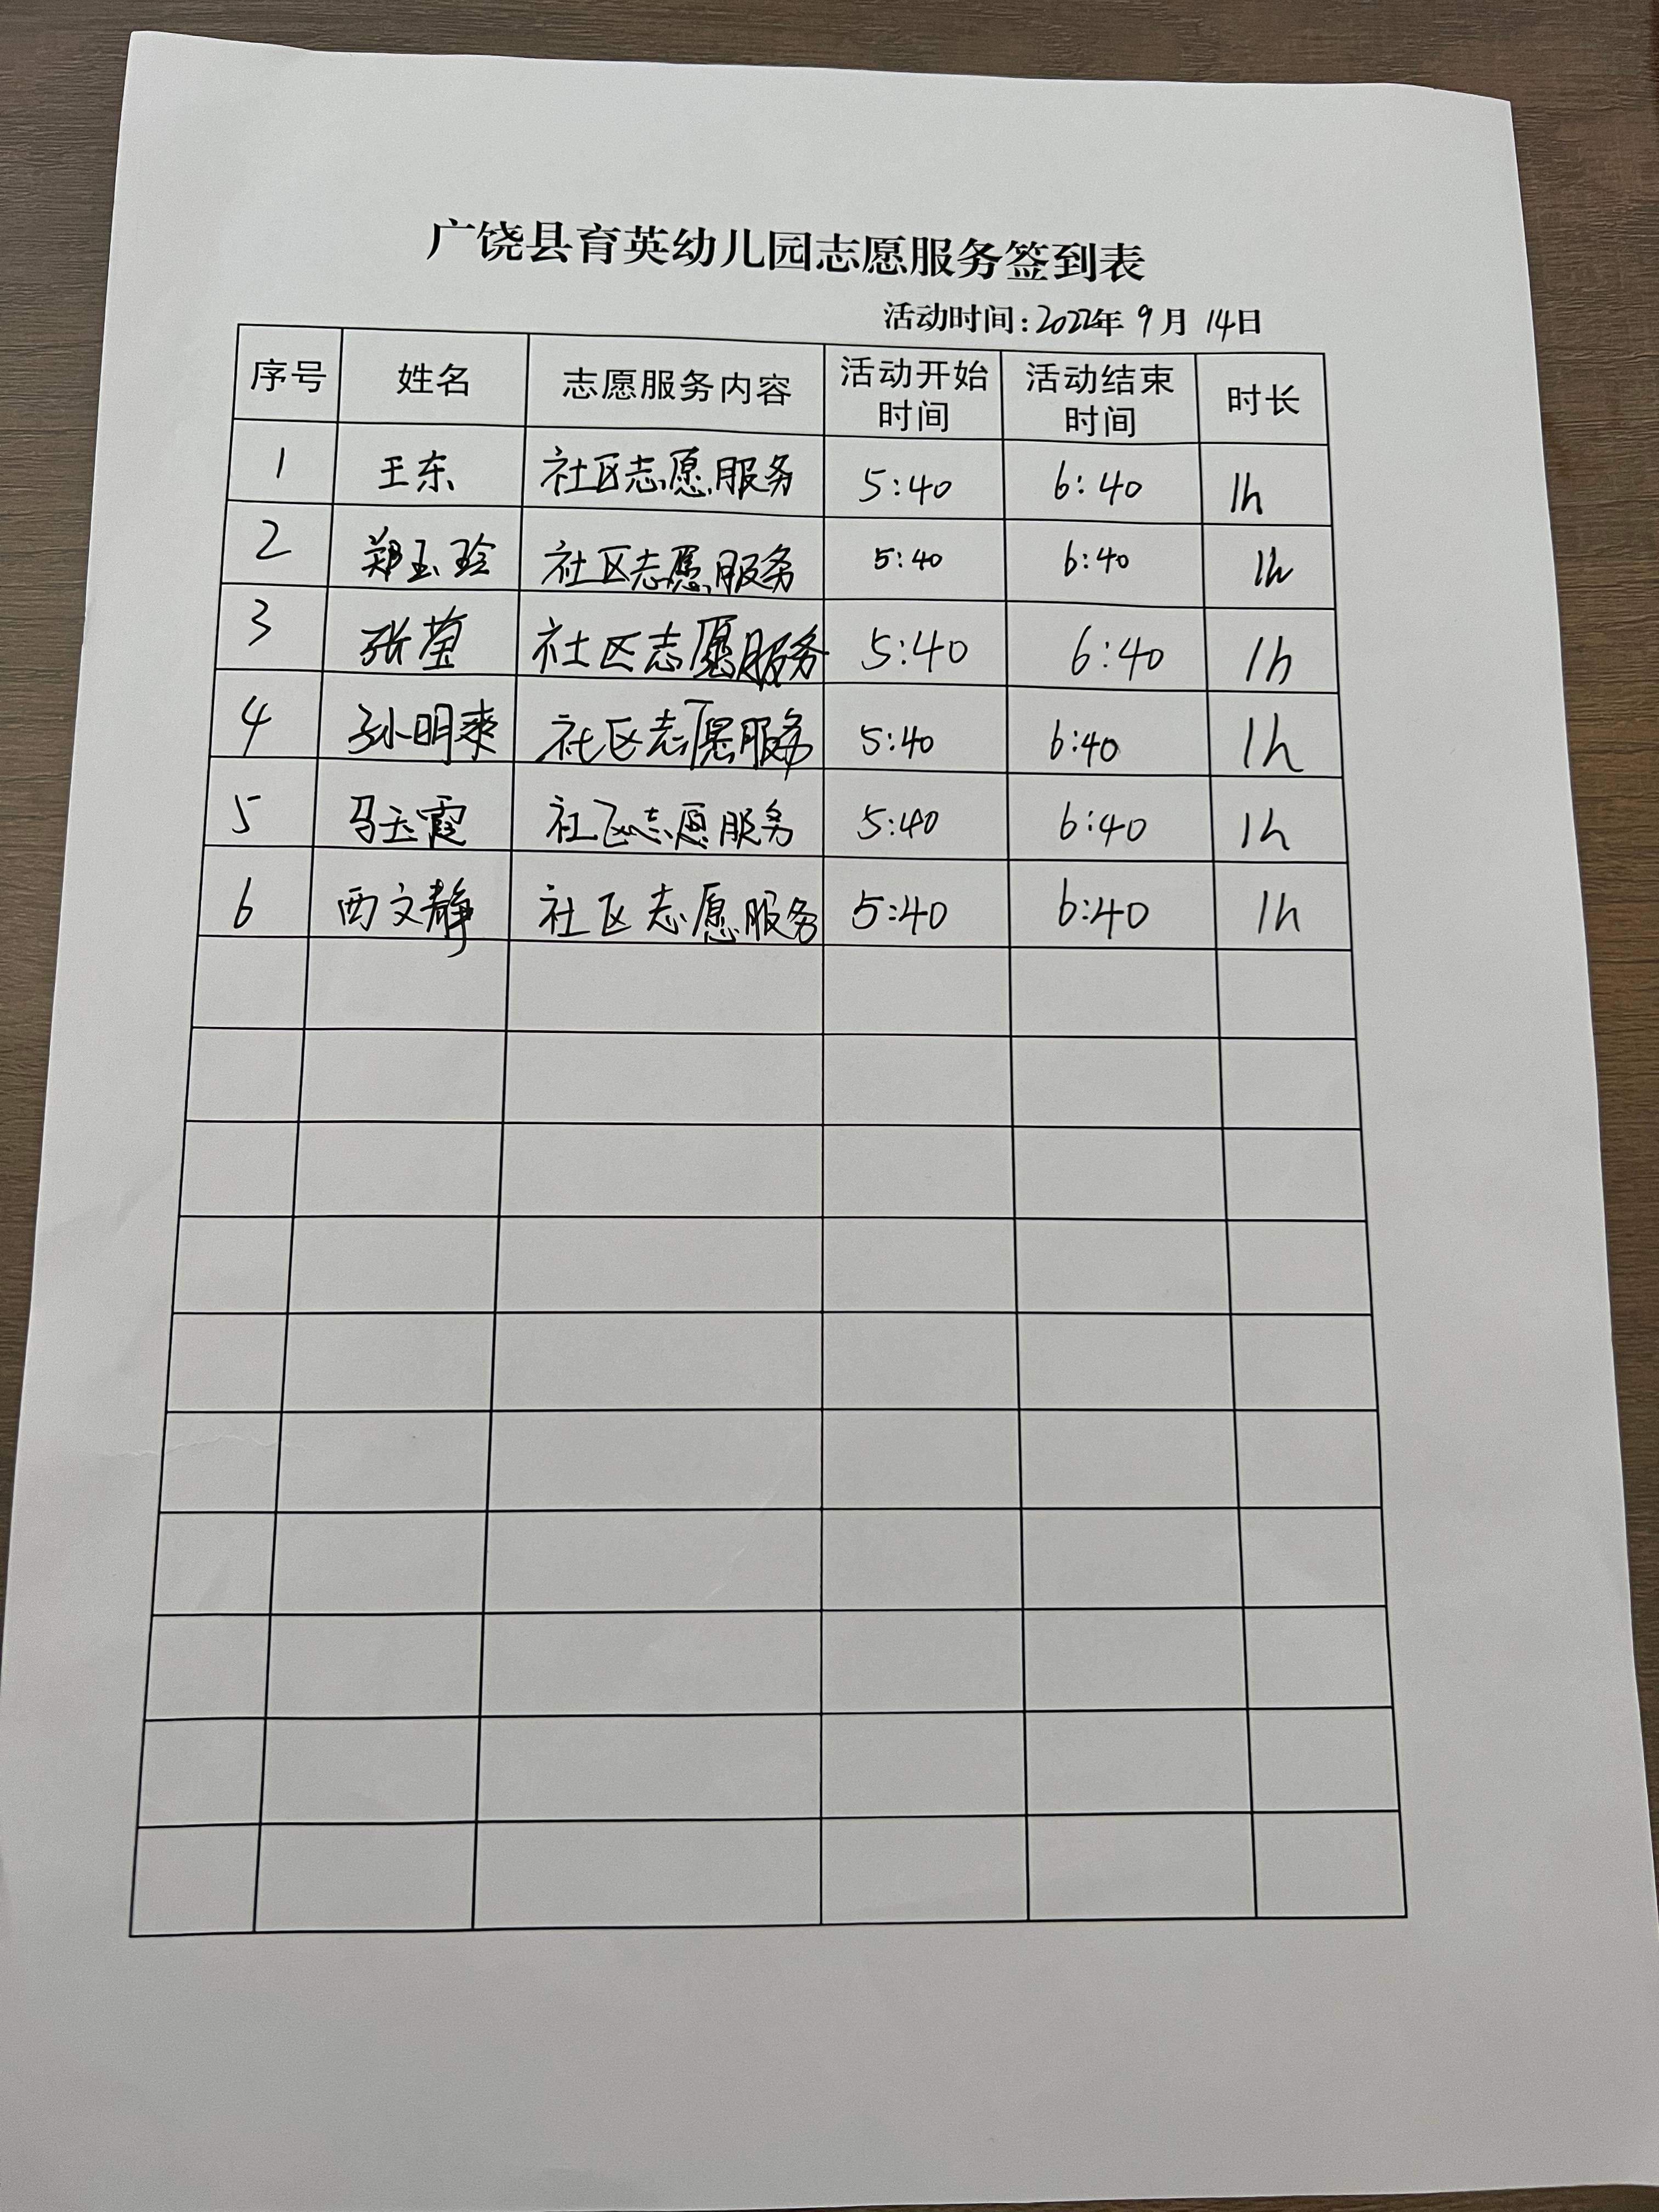 广饶县育英幼儿园志愿服务签到表
活动时间:2022年 9月 14日
序号 姓名 志愿服务内容 活动开始时间 活动结束时间 时长
1 王东 社区志愿服务 5:40 6:40 1h
2 郑玉玲 社区志愿服务 5:40 6:40 1h
3 张莹 社区志愿服务 5:40 6:40 1h
4 孙明爽 社区志愿服务 5:40 6:40 1h
5 马玉霞 社区志愿服务 5:40 6:40 1h
6 西文静 社区志愿服务 5:40 6:40 1h